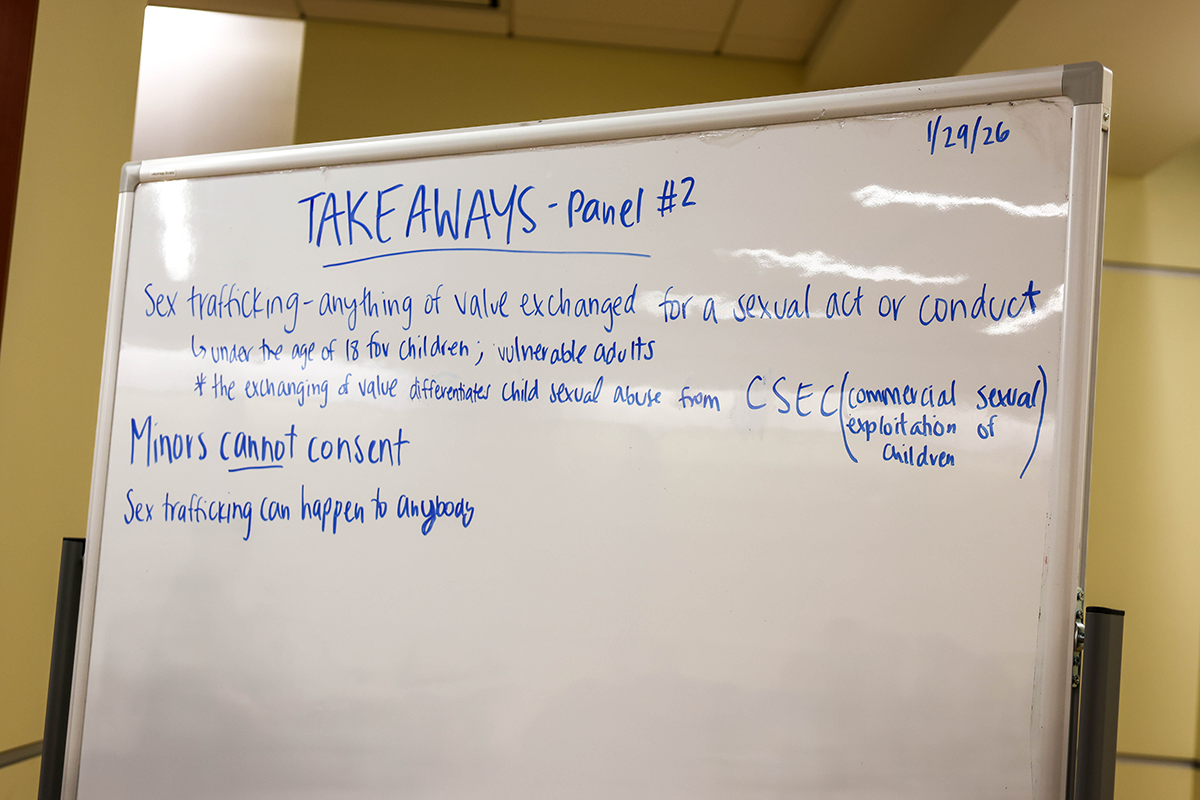 1/29/26
TAKEAWAYS - Panel #2
Sex trafficking - anything of value exchanged for a sexual act or conduct
↳ under the age of 18 for children; vulnerable adults
* the exchanging of value differentiates child sexual abuse from CSEC (commercial sexual
exploitation of
children)
Minors cannot consent
Sex trafficking can happen to anybody